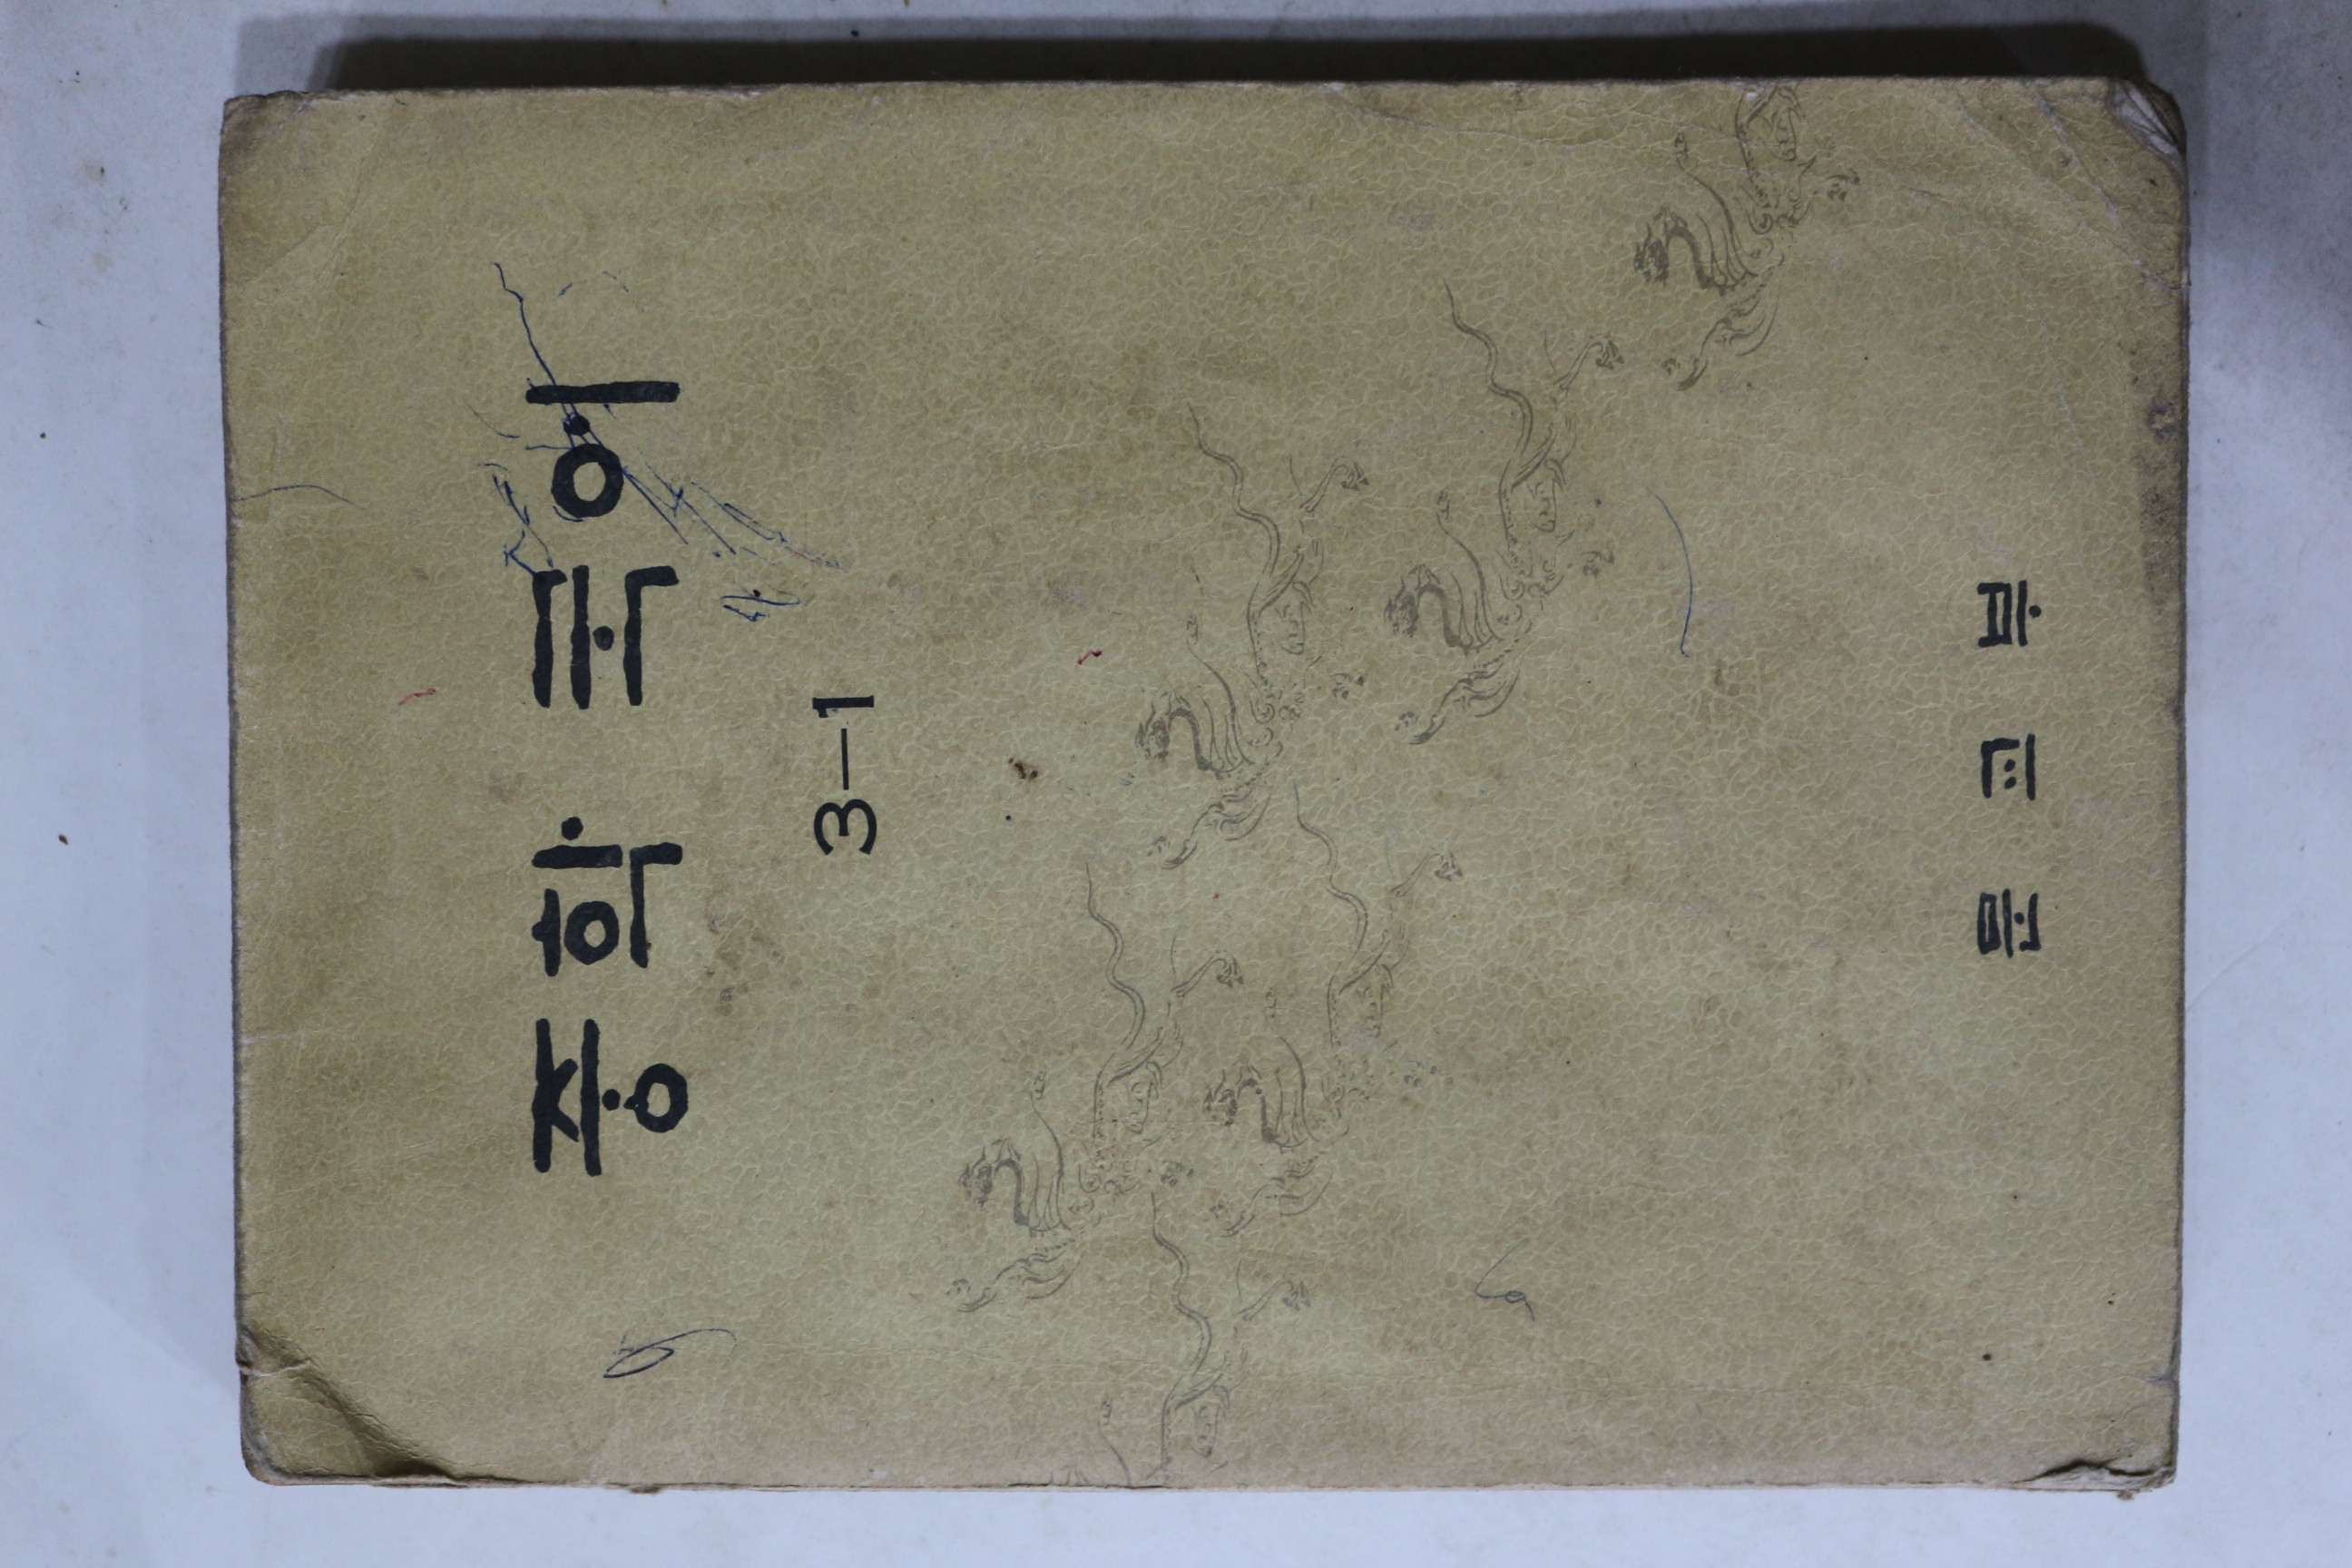 중학 국어
3-1
문교부